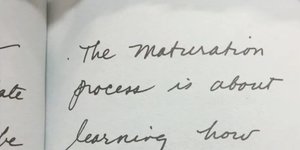 . The maturation
process is about
learning how
ate
be